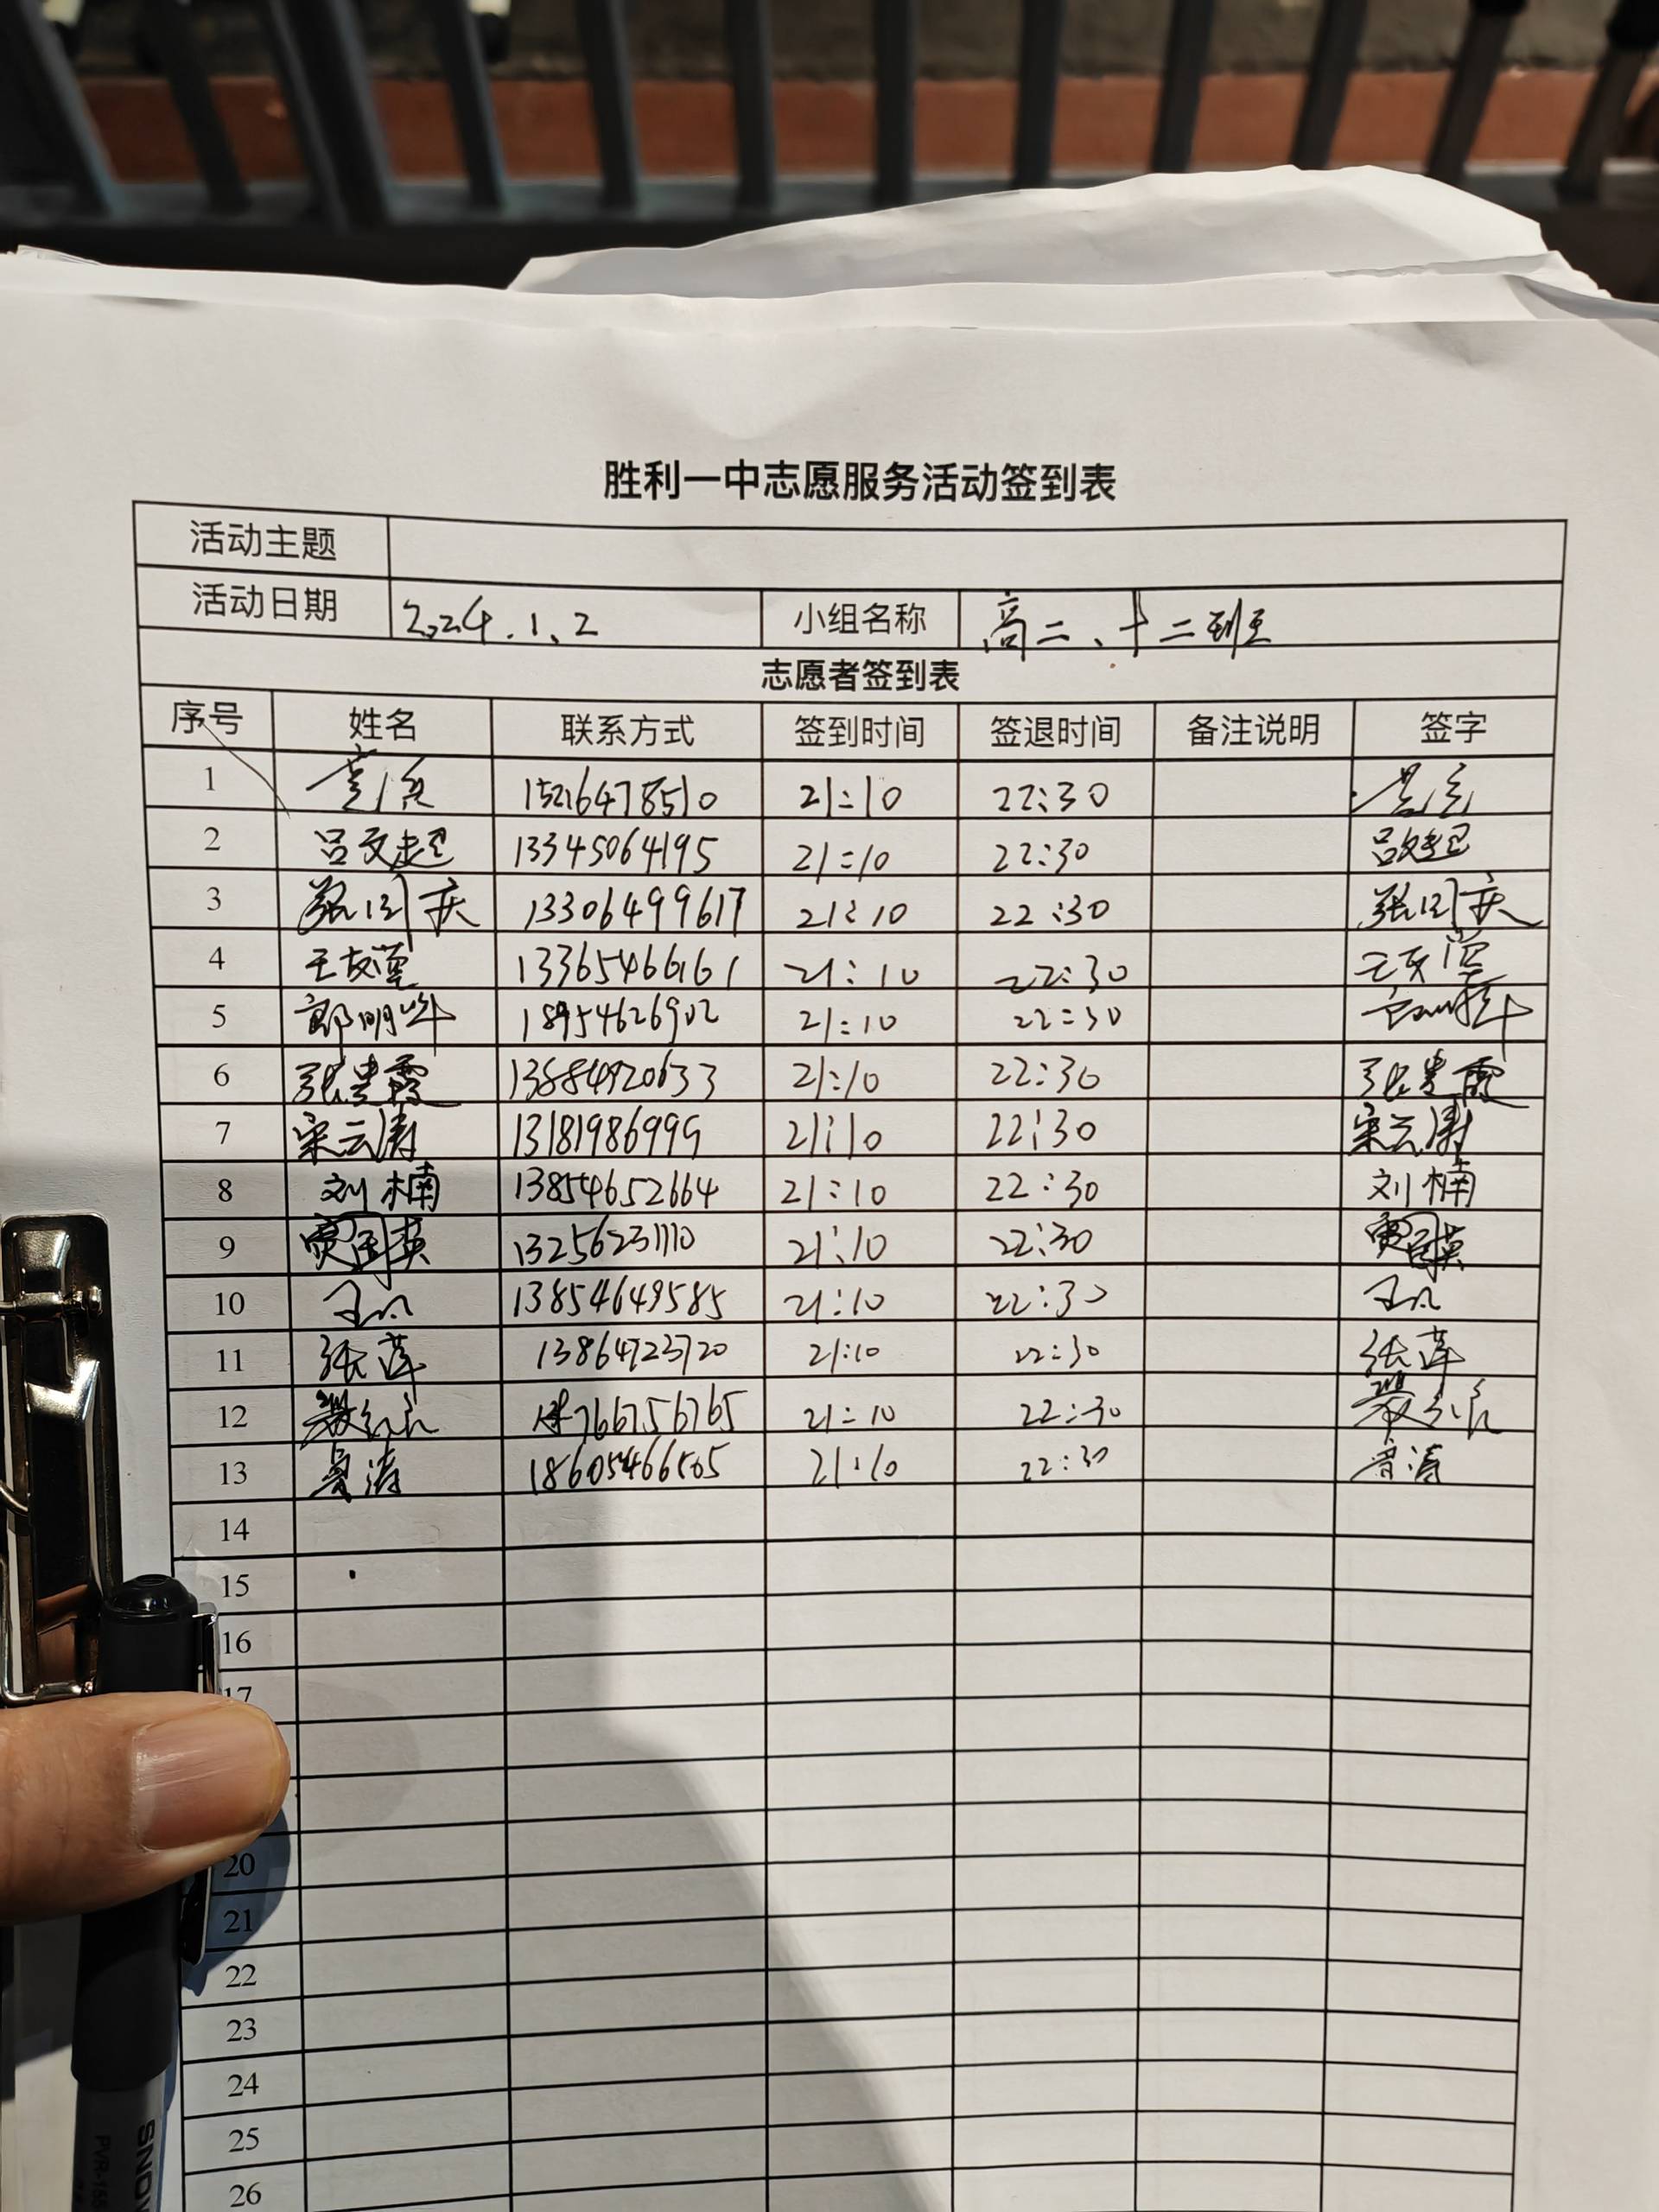 胜利一中志愿服务活动签到表
活动主题
活动日期 2024.1.2 小组名称 高二、十二班
志愿者签到表
序号 姓名 联系方式 签到时间 签退时间 备注说明 签字
1 15216478510 21:10 22:30
2 吕文超 13345064195 21:10 22:30 吕文超
3 张国庆 13306499617 21:10 22:30 张国庆
4 13365466161 21:10 22:30
5 郎明 18954626902 21:10 22:30
6 张贵霞 21:10 22:30 张贵霞
7 宋云涛 13181986999 21:10 22:30 宋云涛
8 刘楠 13854652664 21:10 22:30 刘楠
9 贾国英 13256231110 21:10 22:30 贾国英
10 13854649585 21:10 22:30
11 张莲 13864723720 21:10 22:30 张莲
12 21:10 22:30
13 18605466565 21:10 22:30
14
15
16
17
20
21
22
23
24
25
26
SNOW
PVR-155